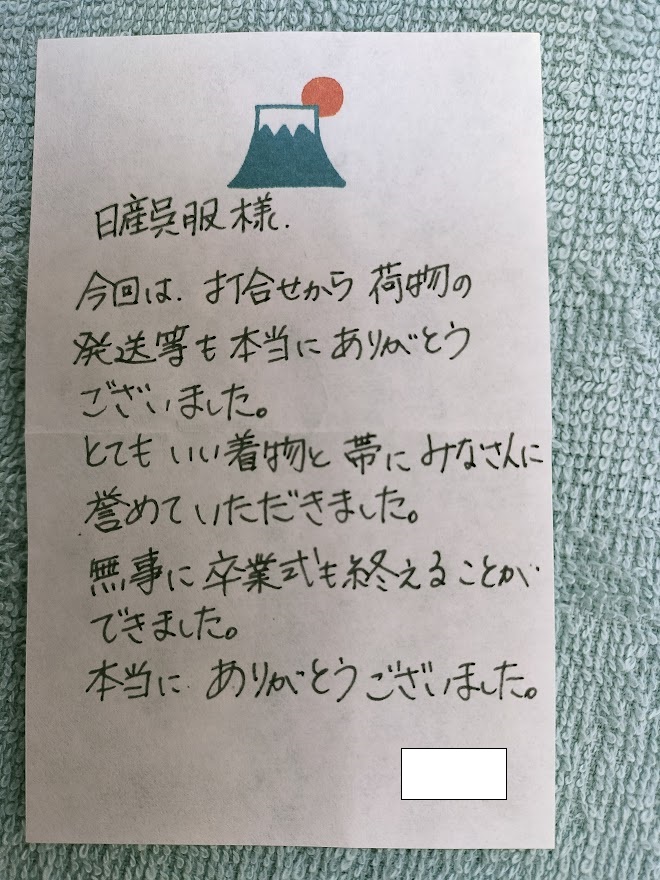 日産呉服様.
今回は、打合せから荷物の
発送等も本当にありがとう
ございました。
とてもいい着物と帯にみなさんに
誉めていただきました。
無事に卒業式も終えることが
できました。
本当に ありがとうございました。